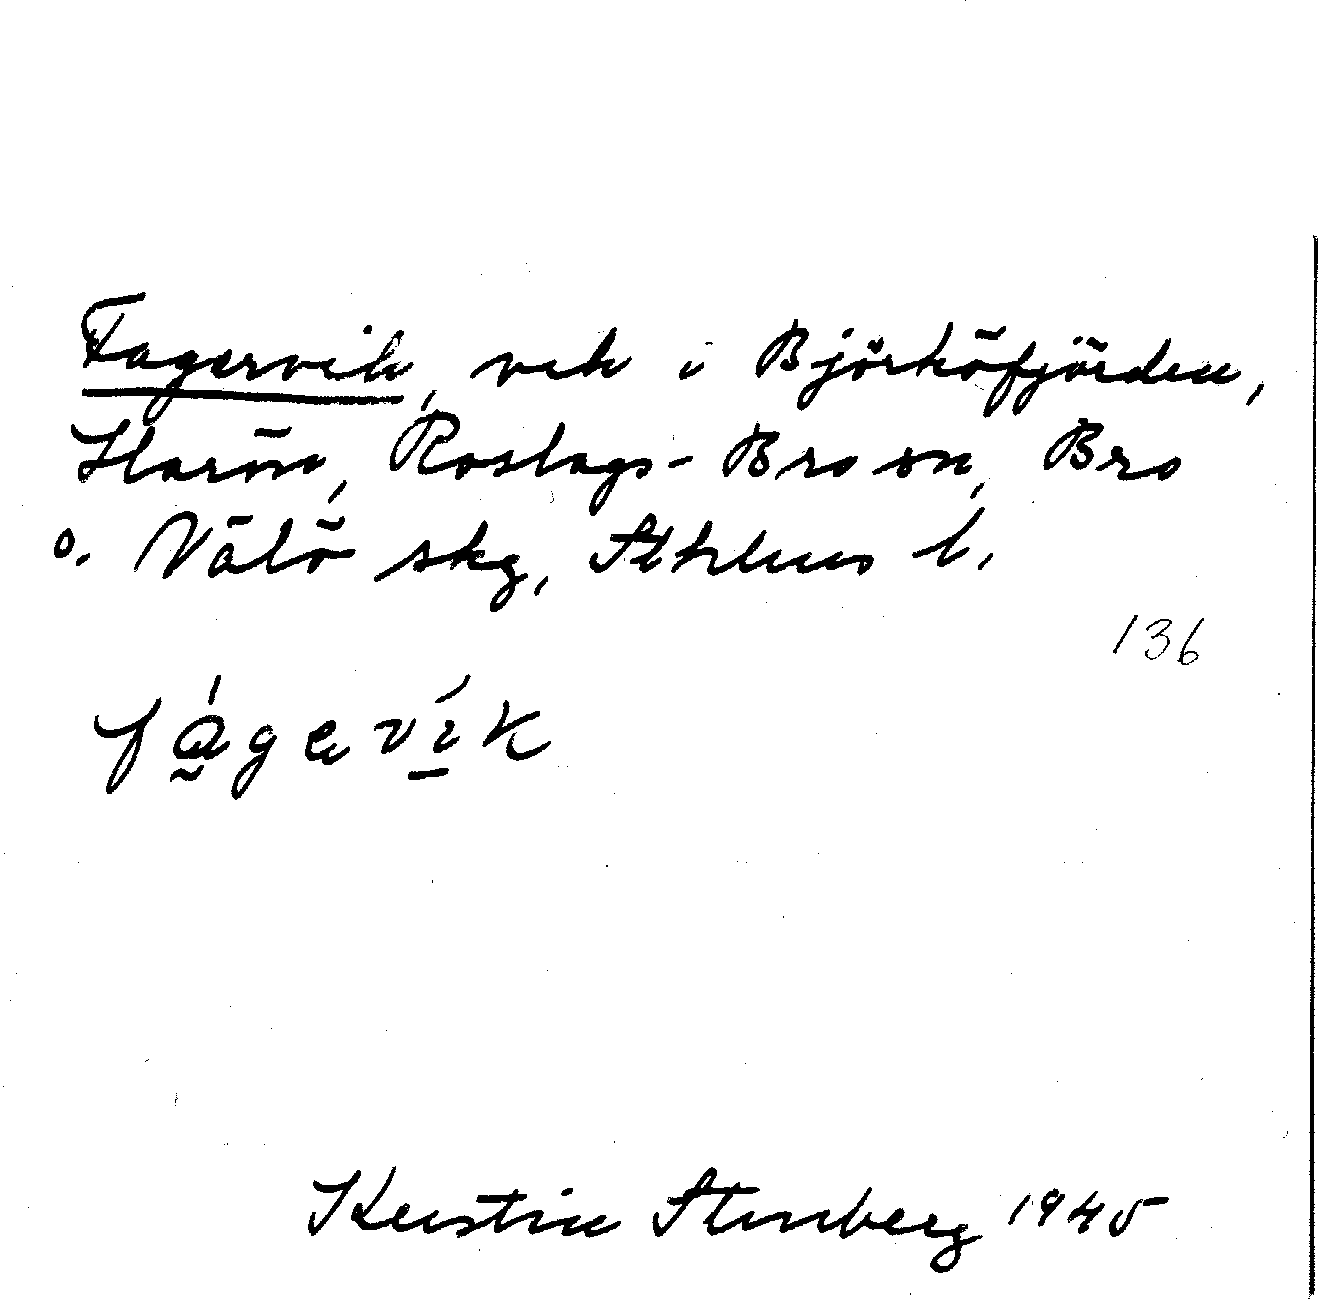 Fagervik, vik i Björköfjärden,
Harön, Roslags-Bro sn, Bro
o. Vätö skg, Sthlms l.
136
fágavík
Kerstin Stenberg 1945